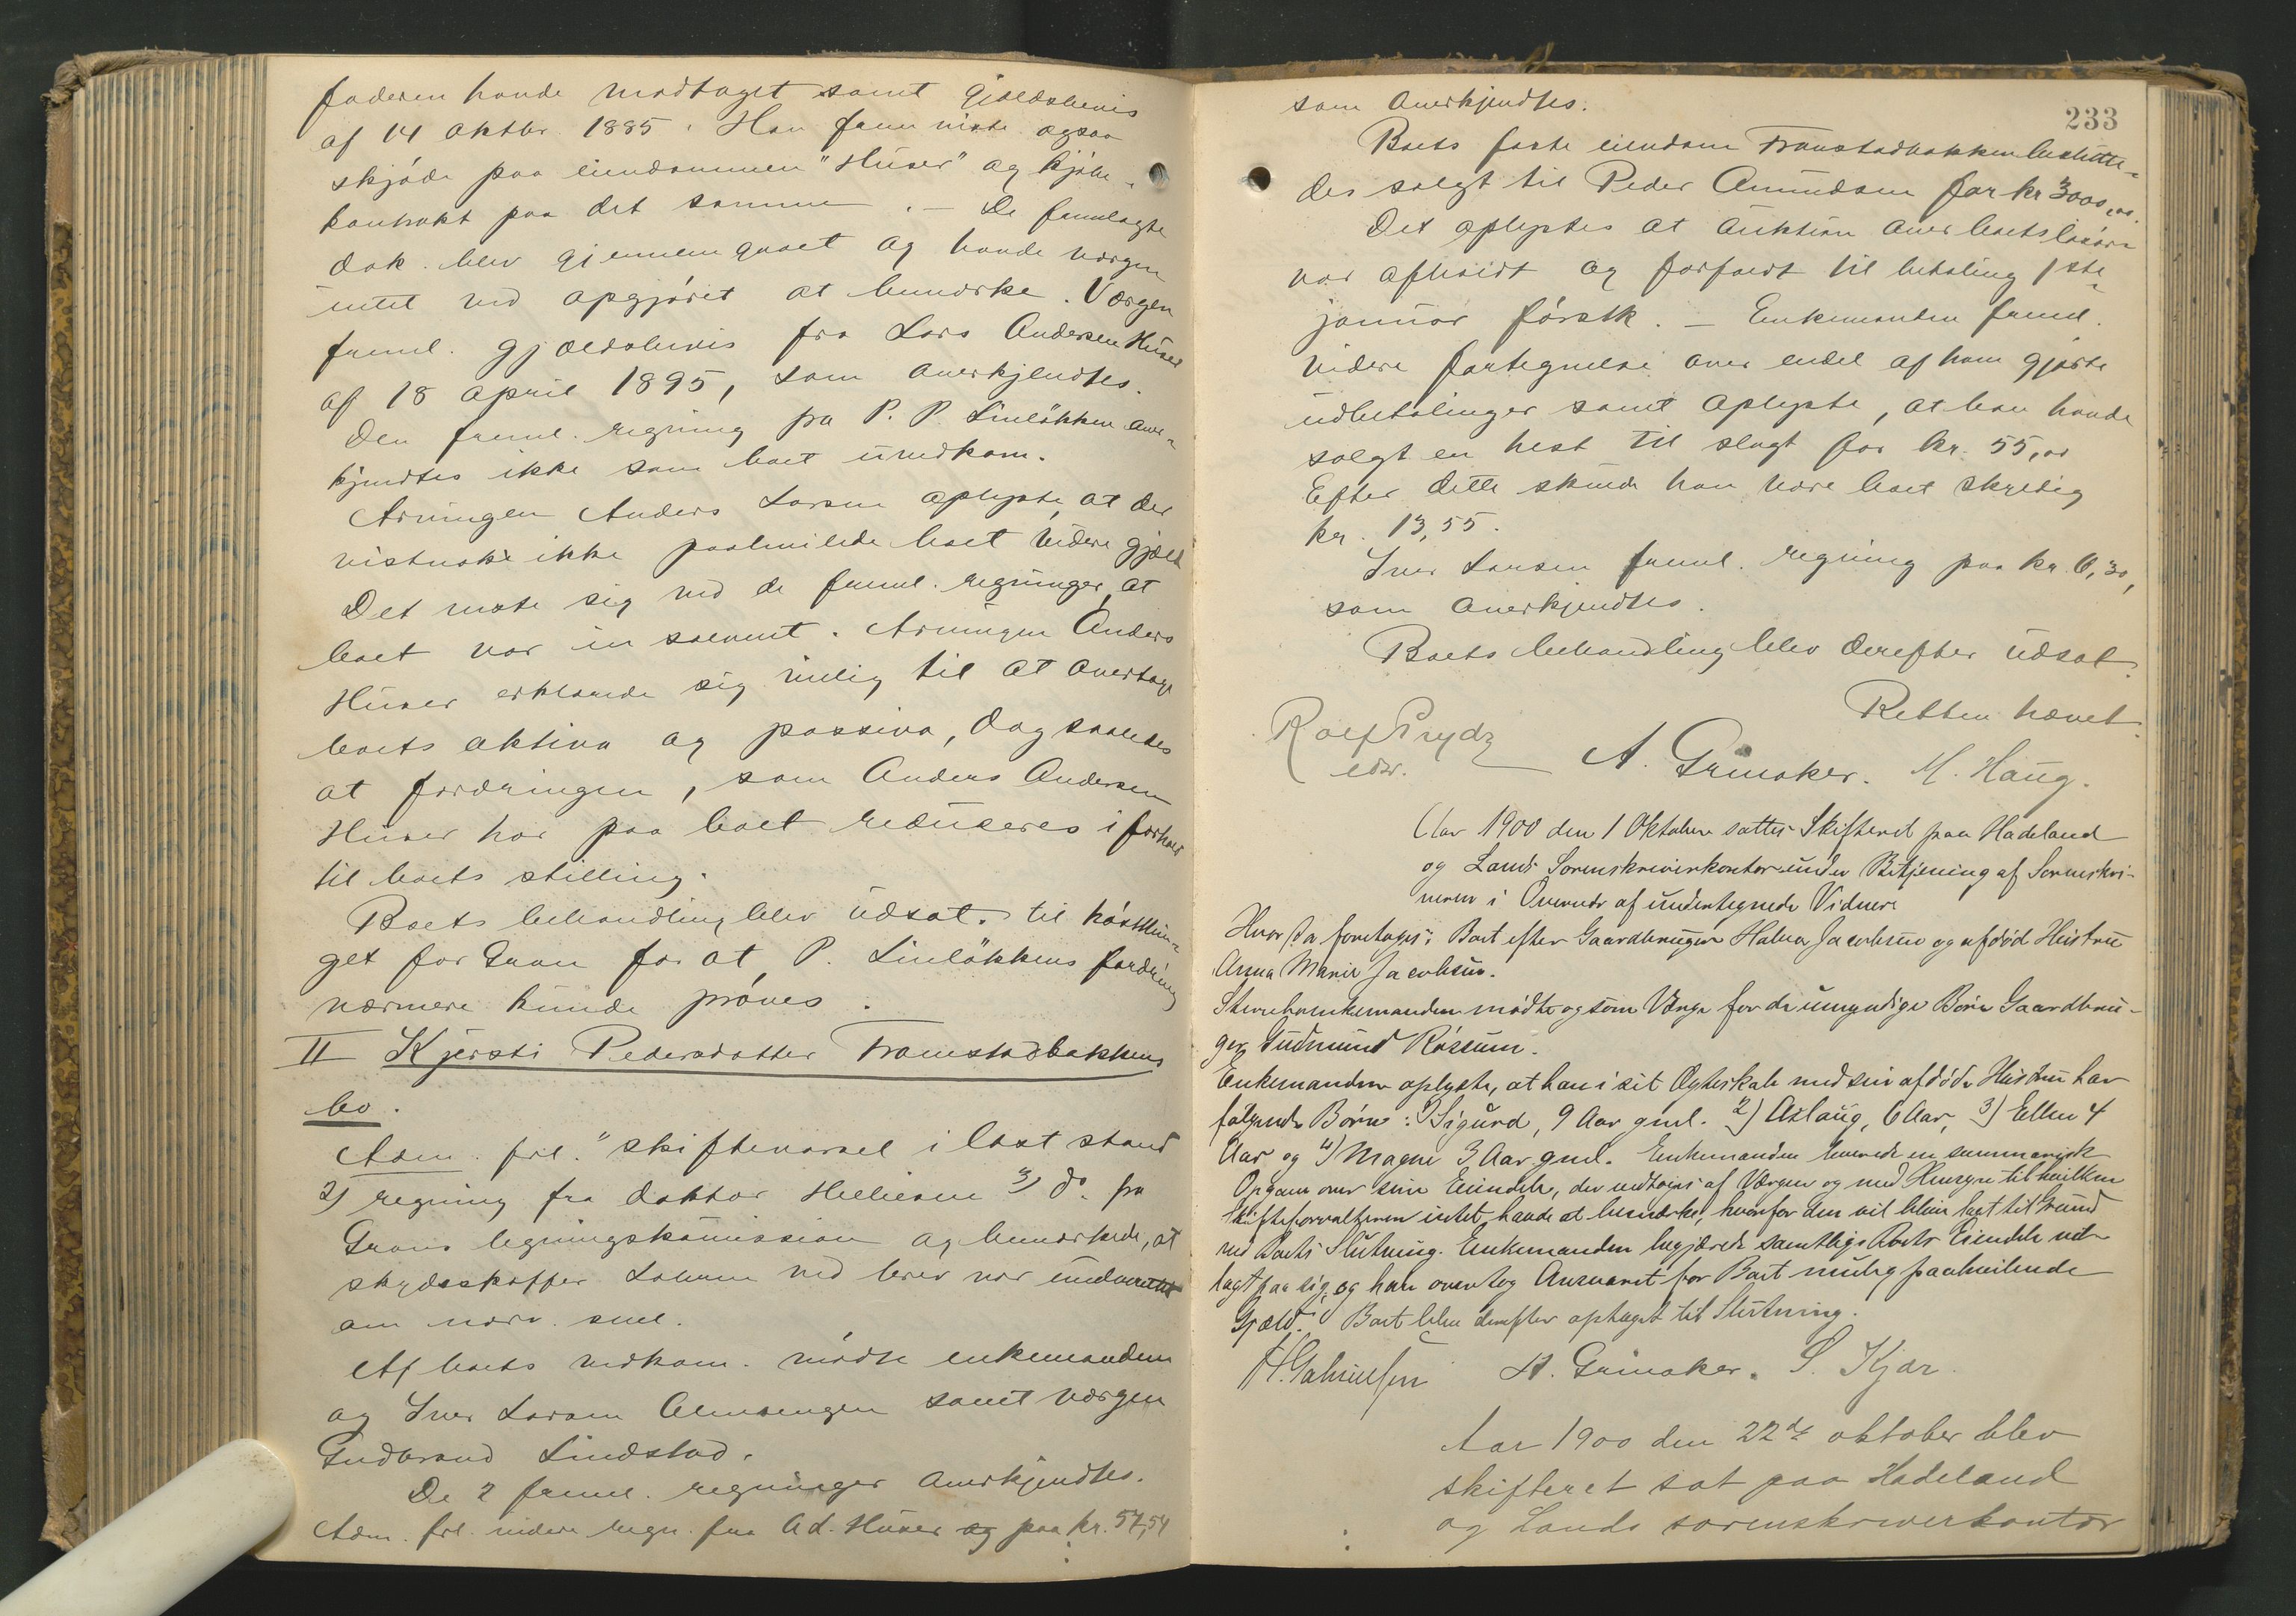 faderen havde modtaget samt gjældsbevis
af 14 oktbr. 1885. Han frem viste ogsaa
skjøde paa eiendommen "Huser" og kjøbe-
kontrakt paa det samme. — De fremlagte
dok. blev gjennemgaaet og havde værgen
intet ved opgjøret at bemærke. Værgen
freml. gjældsbevis fra Lars Andersen Huser
af 18 april 1895, som anerkjendtes.
Den freml. regning fra P. P. Linløkken aner-
kjendtes ikke som boet uvedkom.
Arvingen Anders Larsen oplyste, at der
vistnok ikke paahvilede boet videre gjæld
Det viste sig ved de freml. regninger, at
boet var in solvent. Arvingen Anders
Huser erklærede sig villig til at overtage
boets aktiva og passiva, dog saaledes
at fordringen, som Anders Andersen
Huser har paa boet reduseres i forhold
til boets stilling.
Boets behandling blev udsat til høstthin-
get for Gran for at P. Linløkkens fordring
nærmere kunde prøves.
II Kjersti Pedersdatter Framstadbakkens
bo.
Adm. frl. "skiftevarsel i læst stand
2) regning fra doktor Hellesen 3) do. fra
Grans ligningskomission og bemærkede, at
skydsskaffer Lohnen ved brev var underrettet
om nærv. saml.
Af boets vedkom. mødte enkemanden
og Iver Larsen Almsengen samt værgen
Gudbrand Lindstad.
De 2 freml. regninger anerkjendtes.
Adm. frl. videre regn. fra A. L. Huser og paa kr. 57,54
233
som anerkjendtes.
Boets faste eiendom Framstadbakken beslutte-
des solgt til Peder Amundsen for kr 3000,00.
Det oplystes at auktion over boets løsøre
var afholdt og forfaldt til betaling 1ste
januar førstk. — Enkemanden freml.
videre fortegnelse over endel af ham gjorte
udbetalinger samt oplyste, at han havde
solgt en hest til slagt for kr. 55,00
Efter dette skulde han være boet skyldig
kr. 13,55.
Iver Larsen freml. regning paa kr. 6,30,
som anerkjendtes.
Boets behandling blev derefter udsat.
Retten hævet.
Rolf Prydz
edsv. A. Grinaker. M. Haug.
Aar 1900 den 1 Oktober sattes Skifteret paa Hadeland
og Lands Sorenskriverkontor under Betjening af Sorenskri-
veren i Overvær af undertegnede Vidner
Hvor da foretages: Boet efter Gaardbruger Halvor Jacobsen og afdød Hustru
Anna Marie Jacobsen.
Stervboenkemanden mødte og som Værge for de umyndige Børn Gaardbru-
ger Gudmund Røssum.
Enkemanden oplyste, at han i sit Ægteskab med sin afdøde Hustru har
følgende Børn: 1) Sigurd, 9 Aar gml. 2) Aslaug, 6 Aar, 3) Ellen 4
Aar og 4) Magne 3 Aar gml. Enkemanden leverede en summarisk
Opgave over sine Eiendele, der vedtoges af Værgen og med Hensyn til hvilken
Skifteforvalteren intet havde at bemærke, hvorfor den vil blive lagt til Grund
ved Boets Slutning. Enkemanden begjærede samtlige Boets Eiendele ud-
lagt paa sig, og han overtog Ansvaret for Boet mulig paahvilende
Gjæld. Boet blev derefter optaget til Slutning.
H. Gabrielsen A. Grinaker. S. Kjær.
Aar 1900 den 22de oktober blev
skifteret sat paa Hadeland
og Lands sorenskriverkontor